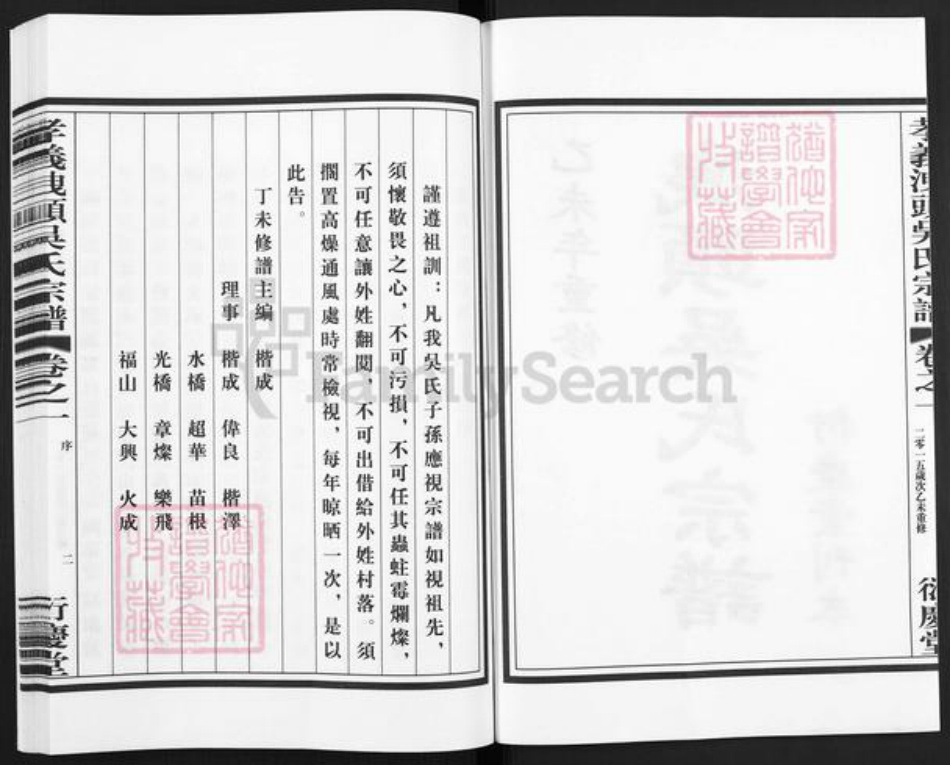 孝義洩頭吳氏宗譜
卷之一
二零一五歲次乙未重修
衍慶堂
猶他家譜學會收藏
乙未年重修
吳氏宗譜
謹遵祖訓：凡我吳氏子孫應視宗譜如視祖先，
須懷敬畏之心，不可污損，不可任其蟲蛀霉爛燦，
不可任意讓外姓翻閱，不可出借給外姓村落。須
擱置高燥通風處時常檢視，每年晾晒一次，是以
此告。
丁未修譜主編　楷成
理事　楷成　偉良　楷澤
水橋　超華　苗根
光橋　章燦　樂飛
福山　大興　火成
猶他家譜學會收藏
孝義洩頭吳氏宗譜
卷之一
序
二
衍慶堂
FamilySearch